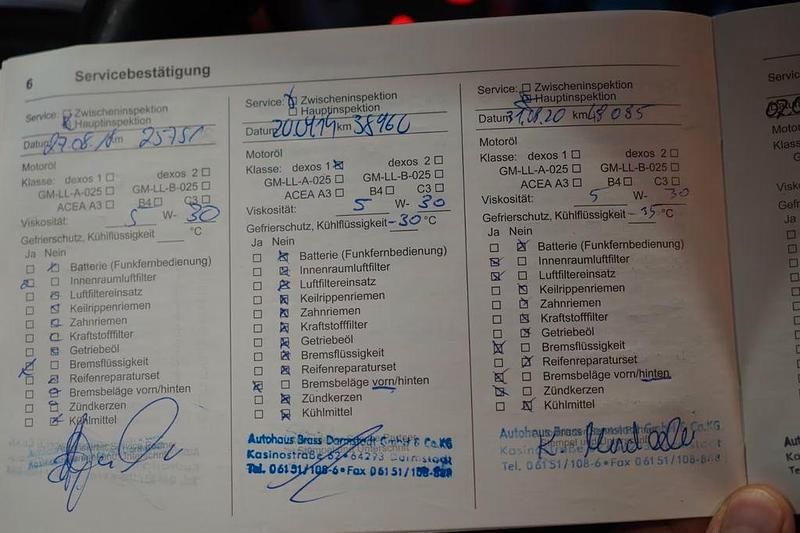 6
Servicebestätigung
Service: Zwischeninspektion
Hauptinspektion
Datum 27.08.18 km 25751
Motoröl
Klasse: dexos 1 dexos 2
GM-LL-A-025 GM-LL-B-025
ACEA A3 B4 C3
Viskosität: 5 W- 30
Gefrierschutz, Kühlflüssigkeit °C
Ja Nein
Batterie (Funkfernbedienung)
Innenraumluftfilter
Luftfiltereinsatz
Keilrippenriemen
Zahnriemen
Kraftstofffilter
Getriebeöl
Bremsflüssigkeit
Reifenreparaturset
Bremsbeläge vorn/hinten
Zündkerzen
Kühlmittel
Service: Zwischeninspektion
Hauptinspektion
Datum km 38960
Motoröl
Klasse: dexos 1 dexos 2
GM-LL-A-025 GM-LL-B-025
ACEA A3 B4 C3
Viskosität: 5 W- 30
Gefrierschutz, Kühlflüssigkeit -30 °C
Ja Nein
Batterie (Funkfernbedienung)
Innenraumluftfilter
Luftfiltereinsatz
Keilrippenriemen
Zahnriemen
Kraftstofffilter
Getriebeöl
Bremsflüssigkeit
Reifenreparaturset
Bremsbeläge vorn/hinten
Zündkerzen
Kühlmittel
Autohaus Brass Darmstadt GmbH & Co.KG
Kasinostraße 62 • 64293 Darmstadt
Tel. 06151/108-6 • Fax 06151/108-888
Service: Zwischeninspektion
Hauptinspektion
Datum 31.08.20 km 48085
Motoröl
Klasse: dexos 1 dexos 2
GM-LL-A-025 GM-LL-B-025
ACEA A3 B4 C3
Viskosität: 5 W- 30
Gefrierschutz, Kühlflüssigkeit -35 °C
Ja Nein
Batterie (Funkfernbedienung)
Innenraumluftfilter
Luftfiltereinsatz
Keilrippenriemen
Zahnriemen
Kraftstofffilter
Getriebeöl
Bremsflüssigkeit
Reifenreparaturset
Bremsbeläge vorn/hinten
Zündkerzen
Kühlmittel
Autohaus Brass Darmstadt GmbH & Co.KG
Tel. 06151/108-6 • Fax 06151/108-888